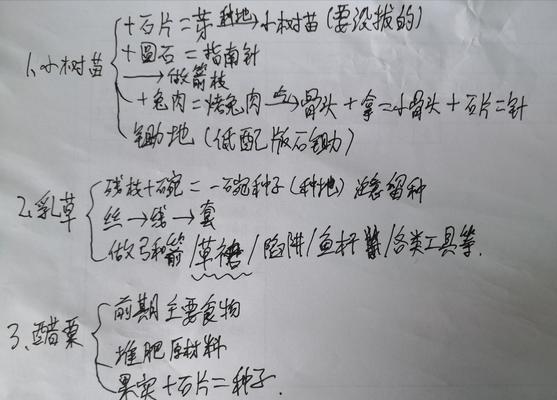 1、小树苗
+石片=芽 种地→小树苗(要没拔的)
+圆石=指南针
→做箭枝
+兔肉=烤兔肉 点→骨头+拿=小骨头+石片=针
锄地(低配版石锄)
2、乳草
残枝+碗=一碗种子(种地) 注意留种
丝→线→套
做弓和箭/草裙/陷阱/鱼杆等/各类工具等.
3、醋栗
前期主要食物
堆肥原材料
果实+石片=种子.